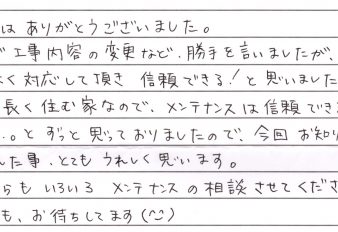 はありがとうございました。
工事内容の変更など、勝手を言いましたが、
く対応して頂き 信頼できる！と思いました
長く住む家なので、メンテナンスは信頼でき
．。と ずっと思っておりましたので、今回 お知り
した事、とても うれしく思います。
らも いろいろ メンテナンスの相談させてくださ
も、お待ちしてます(^^)